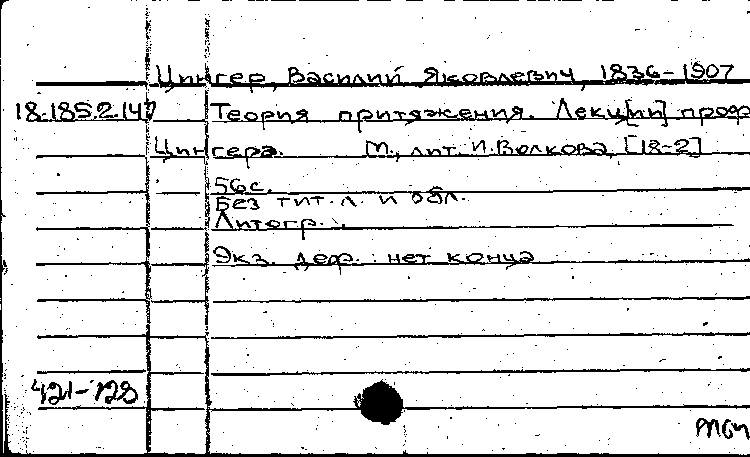 Цингер, Василий Яковлевич, 1836-1907
18.185.2.147 Теория притяжения. Лекц[ии] проф
Цингера. М., лит. И. Волкова, [18-2]
56с.
Без тит. л. и обл.
Литогр.
Экз. деф.: нет конца
421-728